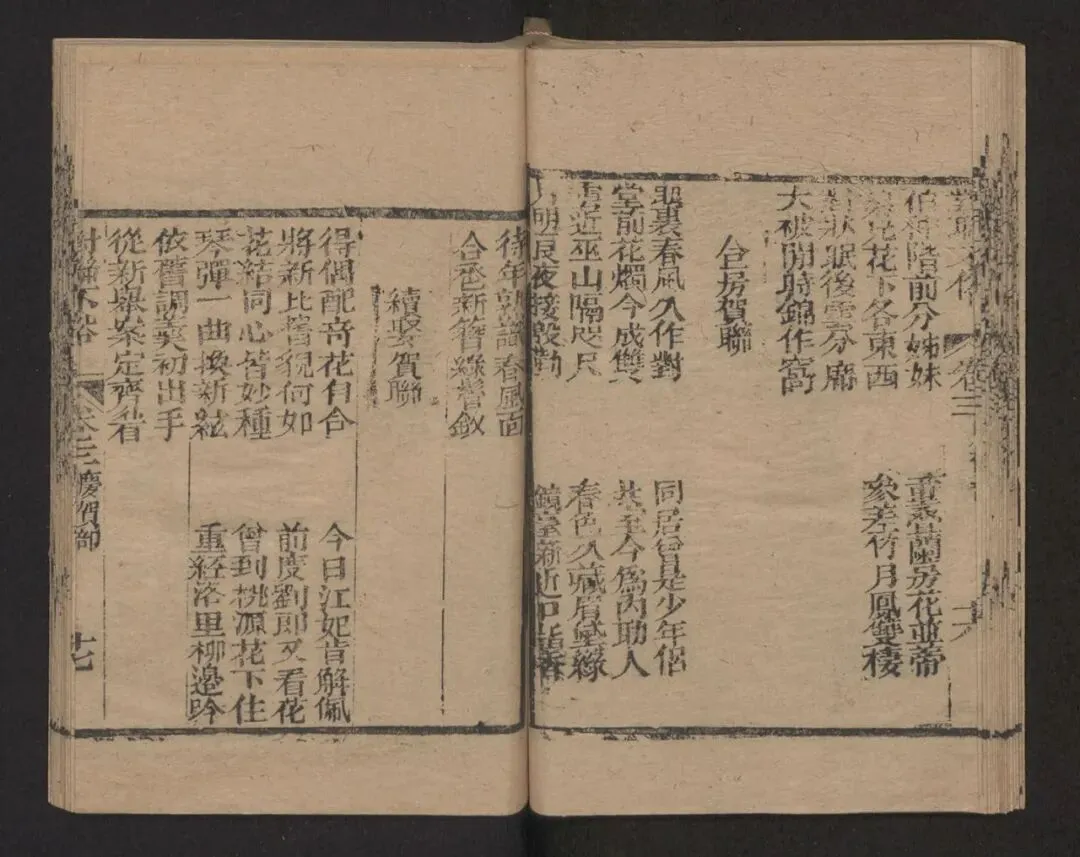 伯仲階前分姊妹
花下各東西
對牀眠後雲分廂
大被開時錦作窩
蘭房花並蒂
竹月鳳雙棲
合房賀聯
裏春風久作對
堂前花燭今成雙
近巫山隔咫尺
良夜接慇懃
同居曾是少年侶
至今為內助人
春色久藏眉黛綠
鏡臺新近口脂香
待年熟識春風面
合巹新簪綠鬢釵
續娶賀聯
得偶配奇花自合
將新比舊貌何如
花結同心皆妙種
琴彈一曲換新絃
依舊調羹初出手
從新舉案定齊眉
今日江妃肯解佩
前度劉郎又看花
曾到桃源花下住
重經洛里柳邊吟
對聯不俗
卷三
慶賀部
卷三